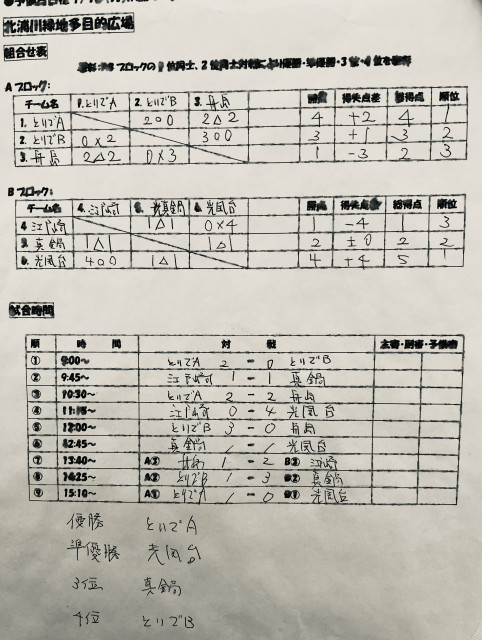 北浦川緑地多目的広場
組合せ表
Aブロック:
チーム名 1.とりでA 2.とりでB 3.舟島 勝点 得失点差 総得点 順位
1.とりでA 2○0 2△2 4 +2 4 1
2.とりでB 0×2 3○0 3 +1 3 2
3.舟島 2△2 0×3 1 -3 2 3
Bブロック:
チーム名 4.江戸崎 5.真鍋 6.光風台 勝点 得失点差 総得点 順位
4.江戸崎 1△1 0×4 1 -4 1 3
5.真鍋 1△1 1△1 2 ±0 2 2
6.光風台 4○0 1△1 4 +4 5 1
試合時間
順 時間 対戦 主審・副審・予備審
① 9:00〜 とりでA 2-0 とりでB
② 9:45〜 江戸崎 1-1 真鍋
③ 10:30〜 とりでA 2-2 舟島
④ 11:15〜 江戸崎 0-4 光風台
⑤ 12:00〜 とりでB 3-0 舟島
⑥ 12:45〜 真鍋 1-1 光風台
⑦ 13:40〜 A③ 舟島 1-2 B③ 江戸崎
⑧ 14:25〜 A② とりでB 1-3 B② 真鍋
⑨ 15:10〜 A① とりでA 1-0 B① 光風台
優勝 とりでA
準優勝 光風台
3位 真鍋
4位 とりでB